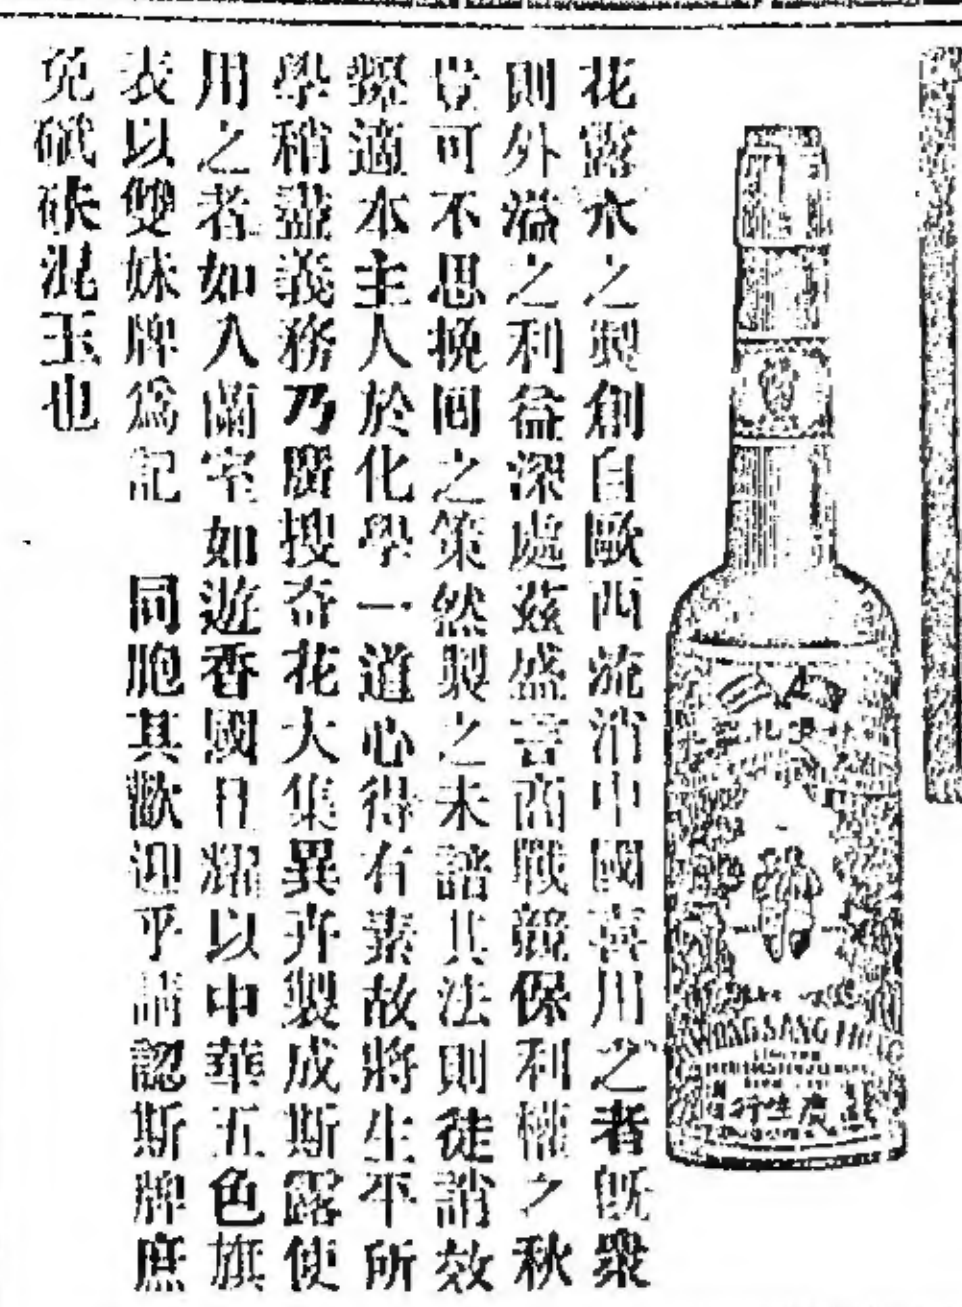 花露水之製創自歐西流消中國喜用之者既衆
則外溢之利益深處茲盛言商戰競保利權之秋
豈可不思挽囘之策然製之未諳其法則徒誚效
顰適本主人於化學一道心得有素故將生平所
學稍盡義務乃廣搜奇花大集異卉製成斯露使
用之者如入蘭室如遊香國日耀以中華五色旗
表以雙妹牌爲記 同胞其歡迎乎請認斯牌庶
免碔砆混玉也
KWONG SANG HONG
LIMITED
行生廣